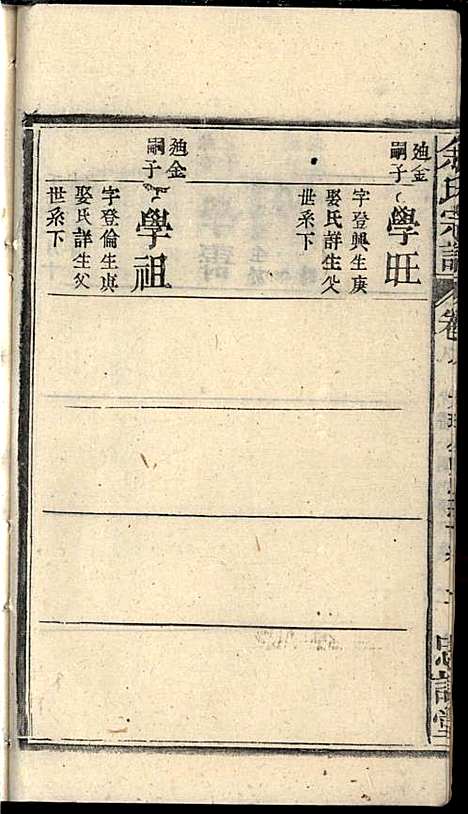 氏宗譜
卷
廸金
嗣子
學旺
字登興生庚
娶氏詳生父
世系下
廸金
嗣子
學祖
字登倫生庚
娶氏詳生父
世系下